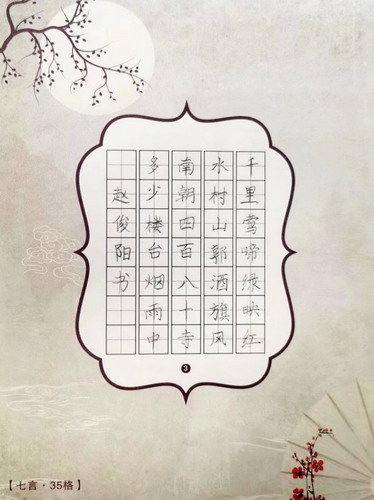 千里莺啼绿映红
水村山郭酒旗风
南朝四百八十寺
多少楼台烟雨中
赵俊阳书
3
【七言·35格】